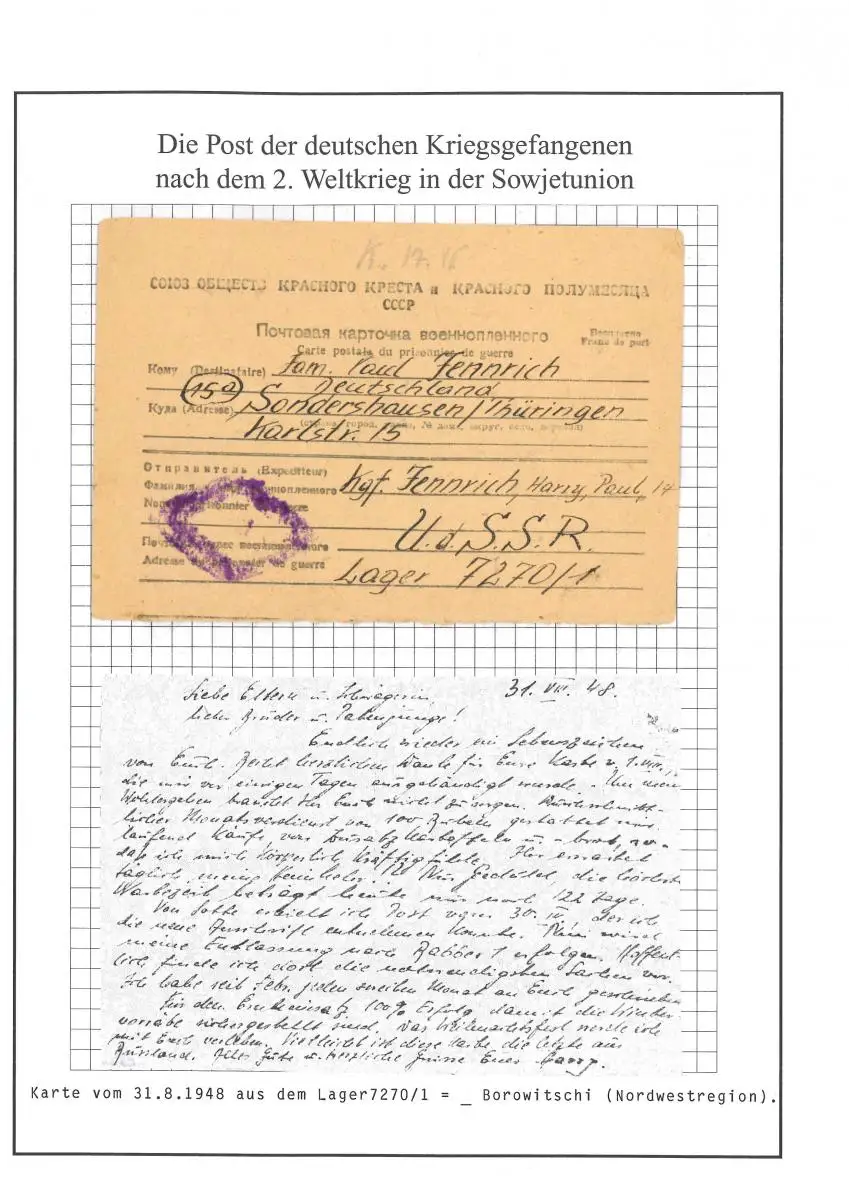 Die Post der deutschen Kriegsgefangenen
nach dem 2. Weltkrieg in der Sowjetunion
K. 17. 15
СОЮЗ ОБЩЕСТВ КРАСНОГО КРЕСТА и КРАСНОГО ПОЛУМЕСЯЦА
СССР
Почтовая карточка военнопленного
Бесплатно
Carte postale du prisonnier de guerre
Franc de port
Кому (Destinataire) Fam. Paul Fennrich
15a Deutschland
Куда (Adresse) Sondershausen/Thüringen
Karlstr. 15
Отправитель (Expediteur)
Фамилия военнопленного Kgf. Fennrich, Harry, Paul, 14
U.d.S.S.R.
Adresse du prisonnier de guerre Lager 7270/1
31. VIII. 48.
Liebe Eltern u. Schwägerin,
lieber Bruder u. Patenjunge!
Endlich wieder ein Lebenszeichen
von Euch. Recht herzlichen Dank für Eure Karte v. 1. VIII.,
die mir vor einigen Tagen ausgehändigt wurde. Um mein
Wohlergehen braucht Ihr Euch nicht zu sorgen. Durchschnitt-
licher Monatsverdienst von 100 Rubeln gestattet mir
laufend Käufe von Zusatzkartoffeln u. -brot, so-
daß ich mich körperlich kräftig fühle. Ihr erwartet
täglich meine Heimkehr. Nur Geduld, die höchste
Wartezeit beträgt heute nur noch 122 Tage.
Von Lotte erhielt ich Post vom 30. IV., der ich
die neue Anschrift entnehmen konnte. Nun wird
meine Entlassung nach erfolgen. Hoffent-
lich finde ich dort die notwendigsten Sachen vor.
Ich habe seit Febr. jeden zweiten Monat an Euch geschrieben
Für den Ernteeinsatz 100% Erfolg, damit die Winter-
vorräte sichergestellt sind. Das Weihnachtsfest werde ich
mit Euch verleben. Vielleicht ist diese Karte die letzte aus
Russland. Alles Gute u. herzliche Grüsse Euer Harry.
Karte vom 31.8.1948 aus dem Lager7270/1 = _ Borowitschi (Nordwestregion).